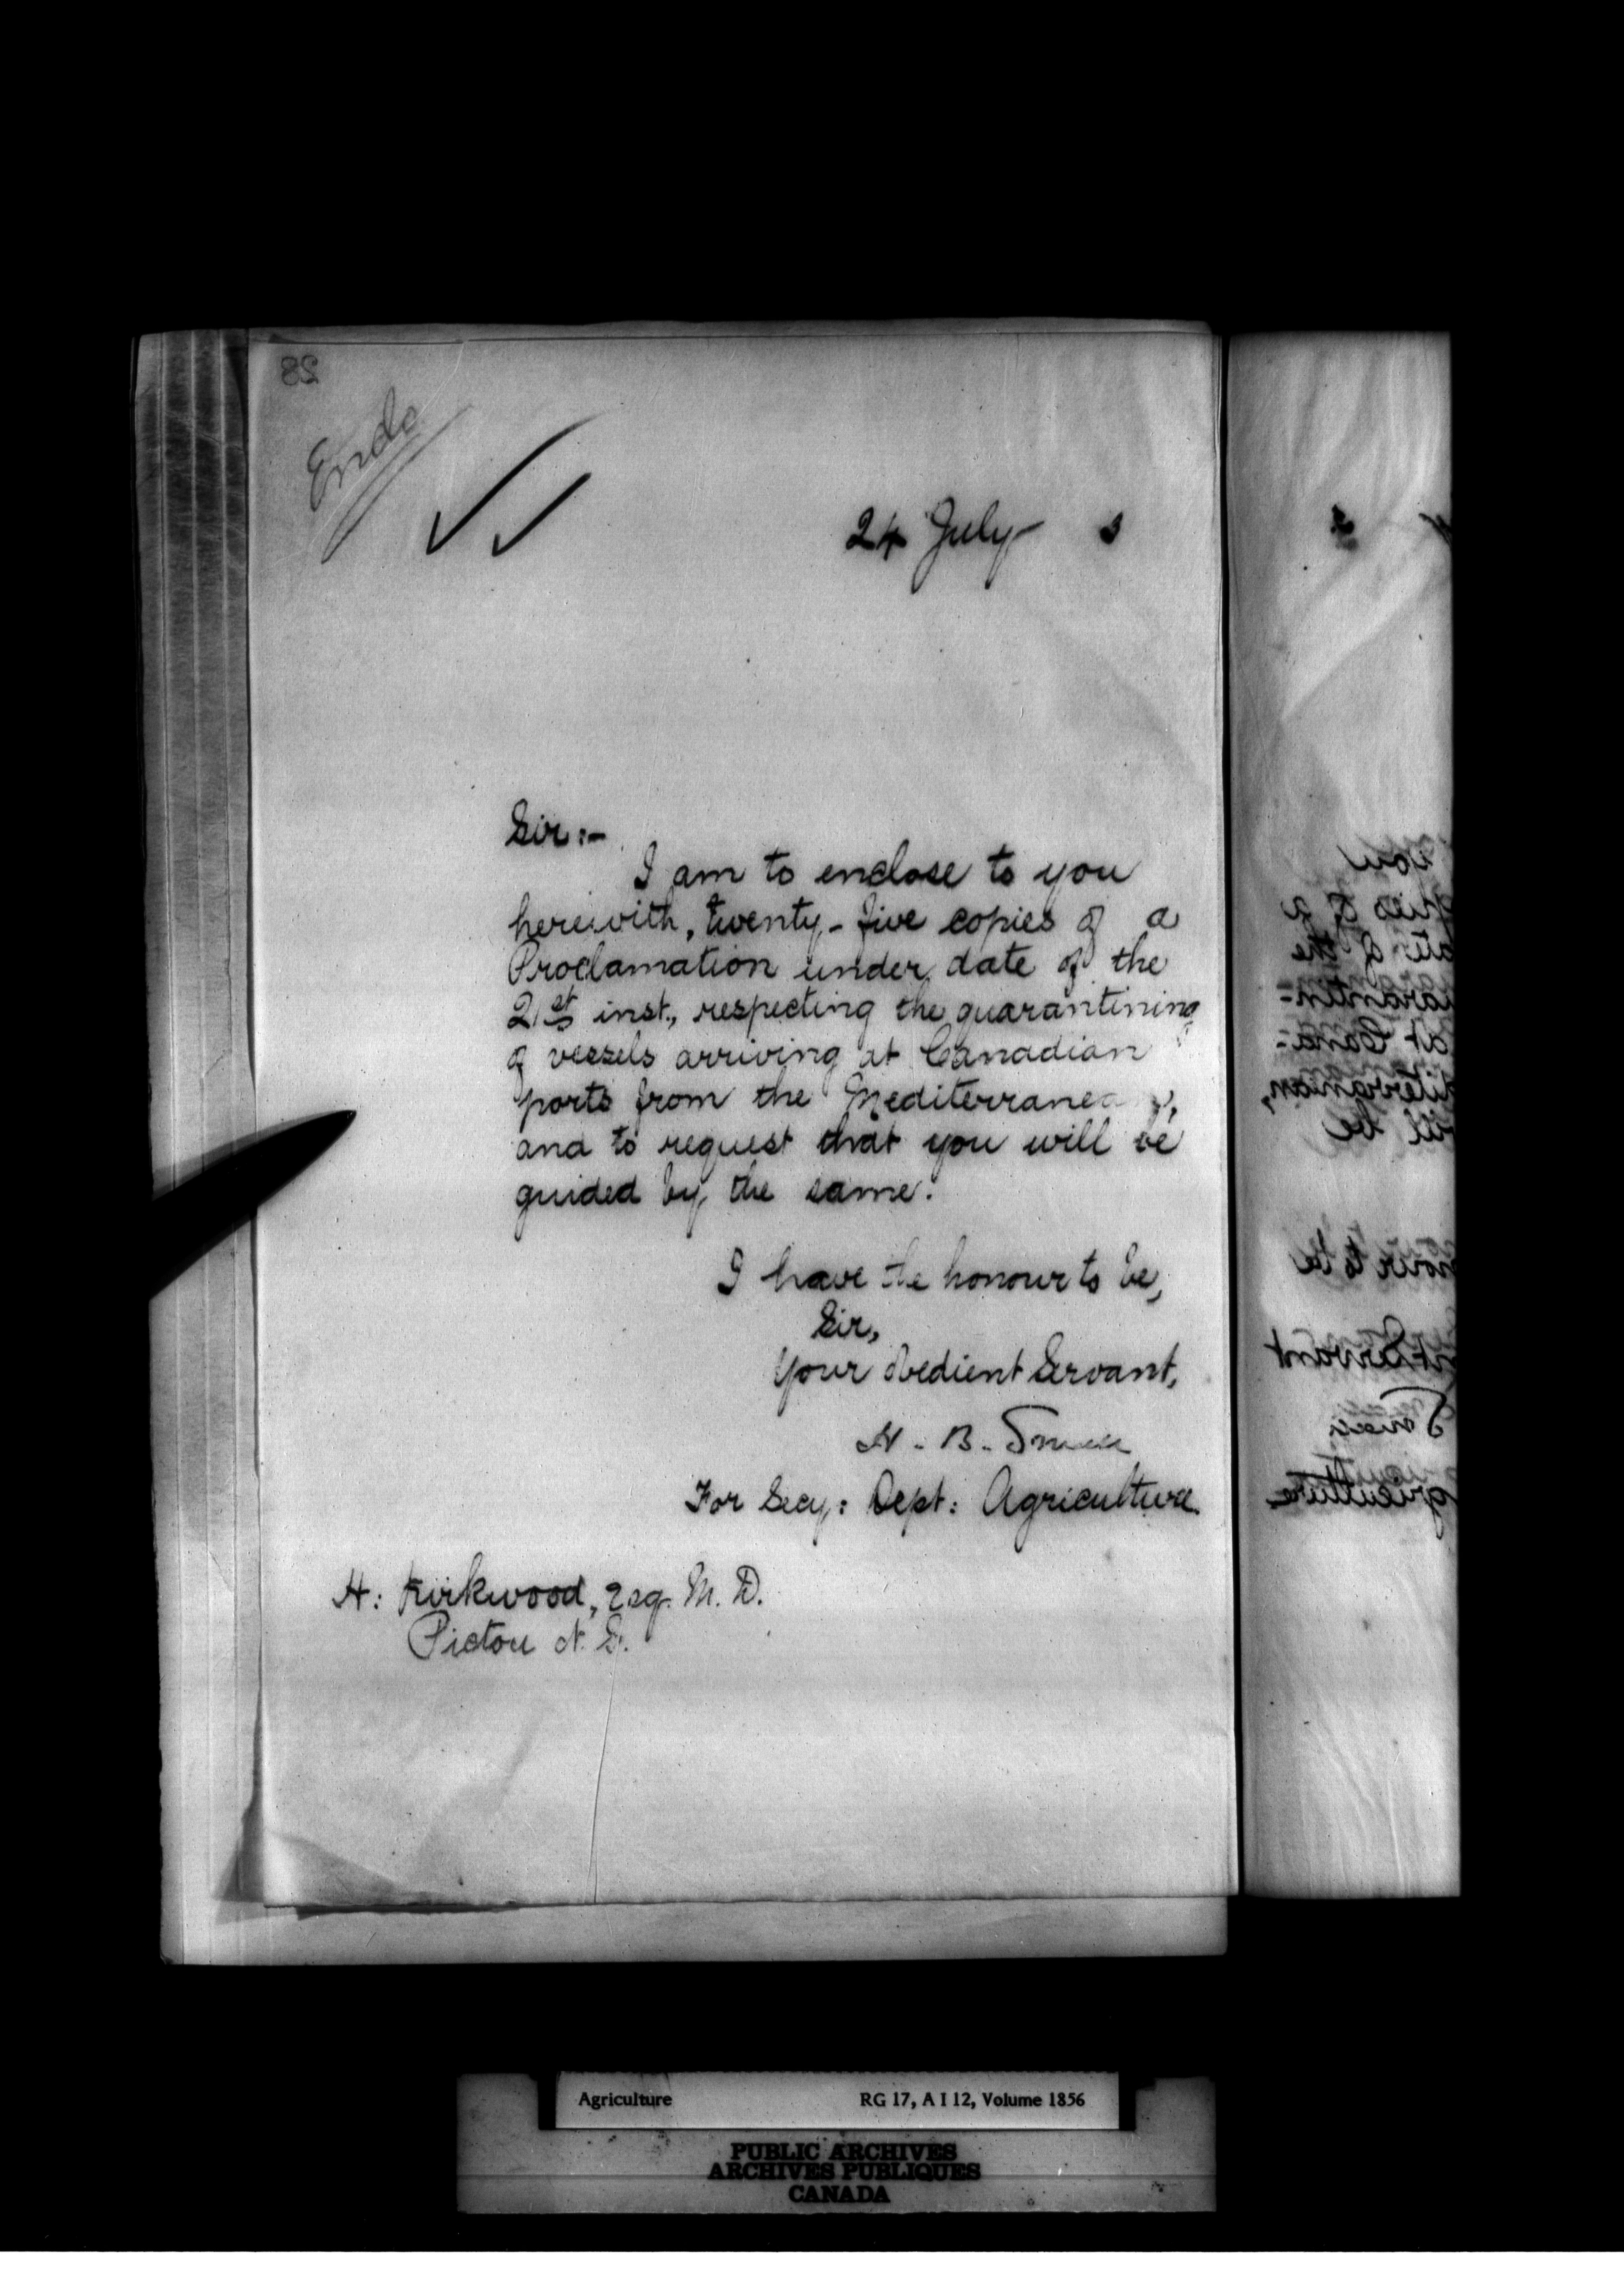 28
Encls
24 July 3
Sir:-
I am to enclose to you
herewith, twenty-five copies of a
Proclamation under date of the
21st inst., respecting the quarantining
of vessels arriving at Canadian
ports from the Mediterranean,
and to request that you will be
guided by the same.
I have the honour to be,
Sir,
Your obedient Servant,
H. B. Small
For Secy: Dept: Agriculture
H: Kirkwood, Esq. M. D.
Pictou N. S.
Agriculture RG 17, A I 12, Volume 1856
PUBLIC ARCHIVES
ARCHIVES PUBLIQUES
CANADA